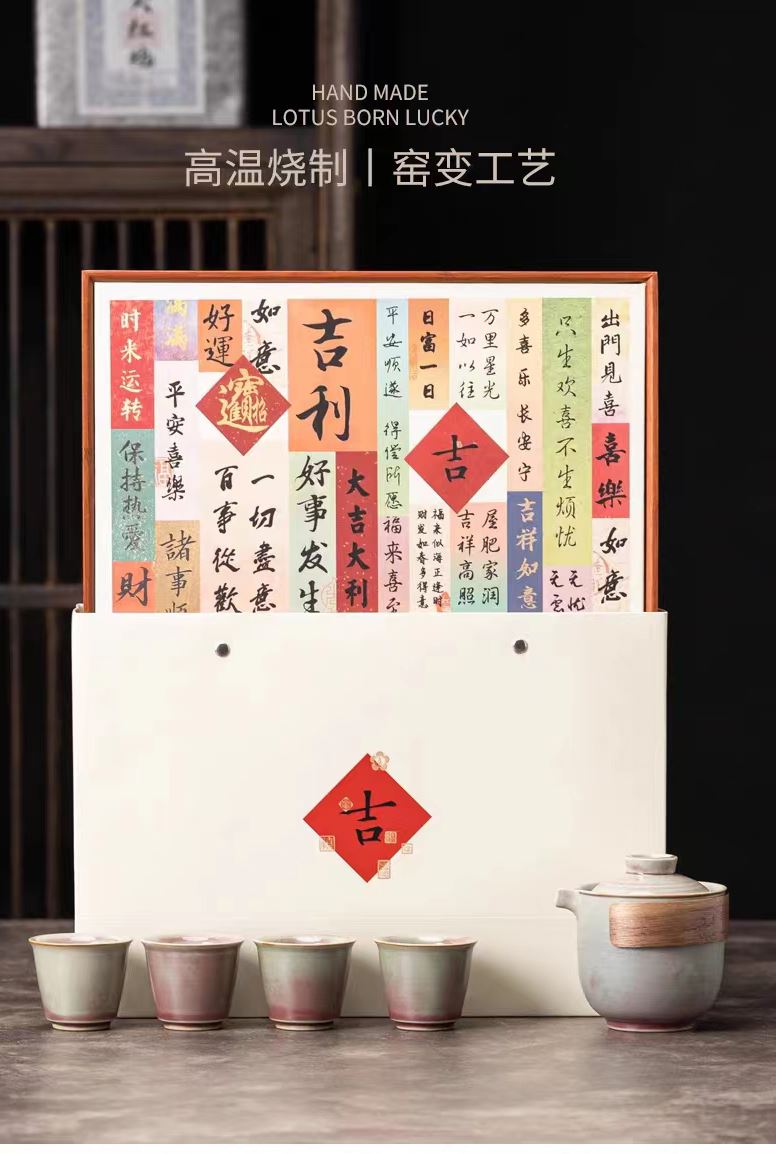 HAND MADE
LOTUS BORN LUCKY
高温烧制丨窑变工艺
时来运转
保持热爱
財
平安喜樂
諸事順
好運
如意
招財進寶
百事從歡
一切盡意
吉利
好事发生
大吉大利
平安顺遂
得偿所愿
福来喜至
日富一日
万里星光
一如以往
吉
福来似海正逢时
财发如春多得意
屋肥家润
吉祥高照
多喜乐
长安宁
吉祥如意
只生欢喜不生烦忧
无忧
无虑
出門見喜
喜樂
如意
吉